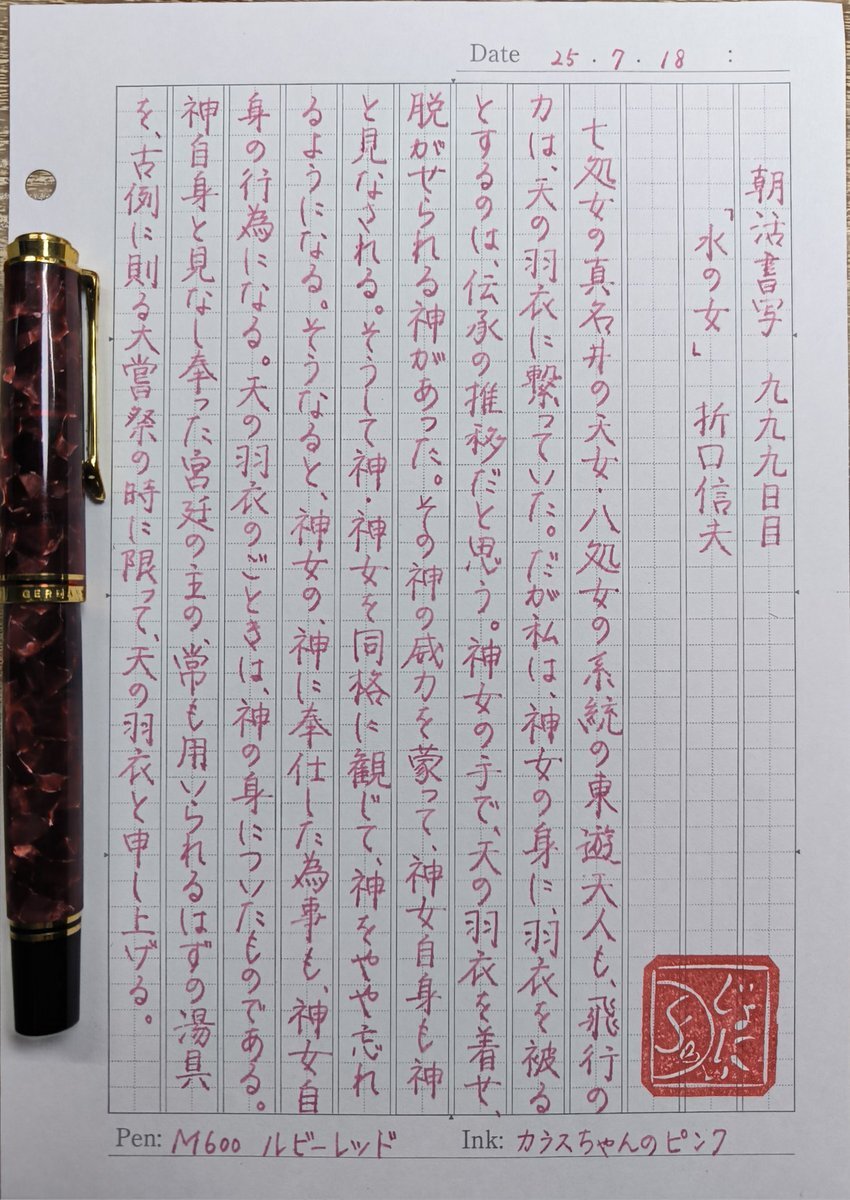 Date 25・7・18 :
朝活書写 九九九日目
「水の女」 折口信夫
七処女の真名井の天女・八処女の系統の東遊天人も、飛行の
力は、天の羽衣に繋っていた。だが私は、神女の身に、羽衣を被る
とするのは、伝承の推移だと思う。神女の手で、天の羽衣を着せ、
脱がせられる神があった。その神の威力を蒙って、神女自身も神
と見なされる。そうして神・神女を同格に観じて、神をやや忘れ
るようになる。そうなると、神女の、神に奉仕した為事も、神女自
身の行為になる。天の羽衣のごときは、神の身についたものである。
神自身と見なし奉った宮廷の主の、常も用いられるはずの湯具
を、古例に則る大嘗祭の時に限って、天の羽衣と申し上げる。
Pen: M600 ルビーレッド
Ink: カラスちゃんのピンク